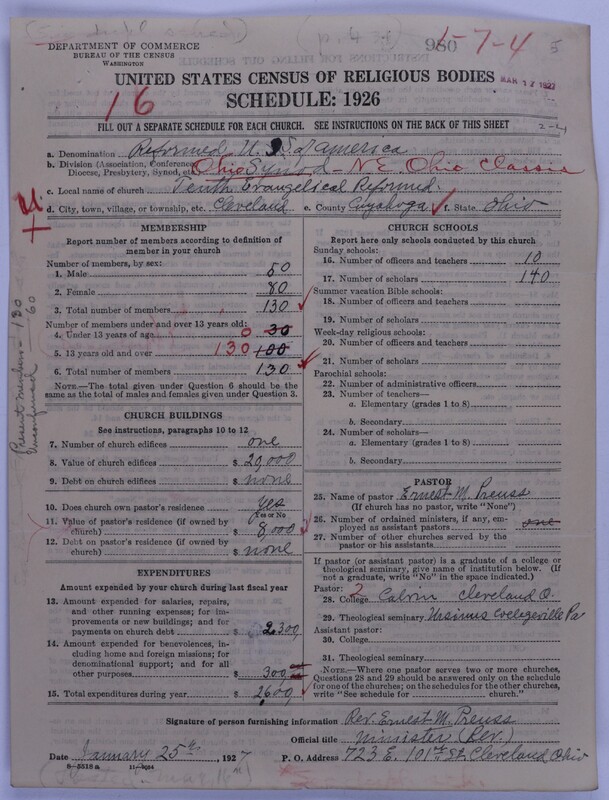 DEPARTMENT OF COMMERCE
BUREAU OF THE CENSUS
WASHINGTON
980 1-7-4 5
UNITED STATES CENSUS OF RELIGIOUS BODIES
MAR 17 1927
16
SCHEDULE: 1926
FILL OUT A SEPARATE SCHEDULE FOR EACH CHURCH. SEE INSTRUCTIONS ON THE BACK OF THIS SHEET
2-4
a. Denomination Reformed U.S. of america
b. Division (Association, Conference, Diocese, Presbytery, Synod, etc. Ohio Synod - N.E. Ohio Classis
c. Local name of church Tenth Evangelical Reformed.
d. City, town, village, or township, etc. Cleveland e. County Cuyahoga f. State Ohio
MEMBERSHIP
Report number of members according to definition of member in your church
Number of members, by sex:
1. Male 50
2. Female 80
3. Total number of members 130
Number of members under and over 13 years old:
4. Under 13 years of age 0 30
5. 13 years old and over 130 100
6. Total number of members 130
NOTE.—The total given under Question 6 should be the same as the total of males and females given under Question 3.
Present members - 130
Unconfirmed 60
CHURCH BUILDINGS
See instructions, paragraphs 10 to 12
7. Number of church edifices one
8. Value of church edifices $ 20,000
9. Debt on church edifices $ none
10. Does church own pastor's residence yes
Yes or No
11. Value of pastor's residence (if owned by church) $ 8,000
12. Debt on pastor's residence (if owned by church) $ none
EXPENDITURES
Amount expended by your church during last fiscal year
13. Amount expended for salaries, repairs, and other running expenses; for improvements or new buildings; and for payments on church debt $ 2300
14. Amount expended for benevolences, including home and foreign missions; for denominational support; and for all other purposes $ 300
15. Total expenditures during year $ 2600
CHURCH SCHOOLS
Report here only schools conducted by this church
Sunday schools:
16. Number of officers and teachers 10
17. Number of scholars 140
Summer vacation Bible schools:
18. Number of officers and teachers
19. Number of scholars
Week-day religious schools:
20. Number of officers and teachers
21. Number of scholars
Parochial schools:
22. Number of administrative officers
23. Number of teachers—
a. Elementary (grades 1 to 8)
b. Secondary
24. Number of scholars—
a. Elementary (grades 1 to 8)
b. Secondary
PASTOR
25. Name of pastor Ernest M. Preuss
(If church has no pastor, write "None")
26. Number of ordained ministers, if any, employed as assistant pastors one
27. Number of other churches served by the pastor or his assistants
If pastor (or assistant pastor) is a graduate of college or theological seminary, give name of institution below. (If not a graduate, write "No" in the space indicated.)
Pastor: 2
28. College Calvin Cleveland O.
29. Theological seminary Ursinus Collegeville Pa
Assistant pastor:
30. College
31. Theological seminary
NOTE.—Where one pastor serves two or more churches, Questions 28 and 29 should be answered only on the schedule for one of the churches; on the schedules for the other churches, write "See schedule for church."
Signature of person furnishing information Rev. Ernest M. Preuss
Official title Minister (Rev.)
Date January 25th, 1927 P. O. Address 723 E. 101st St. Cleveland, Ohio